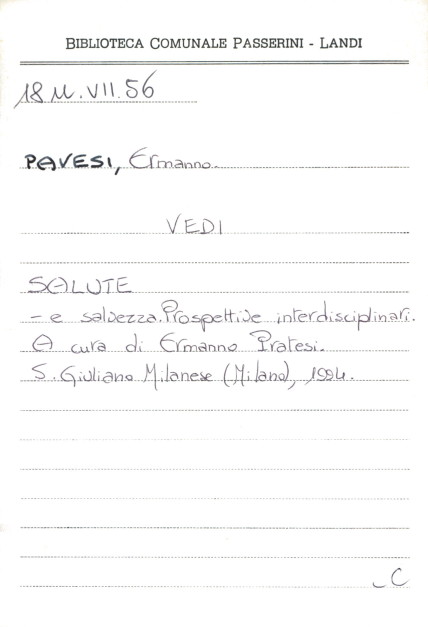 BIBLIOTECA COMUNALE PASSERINI - LANDI
18 M.VII.56
PAVESI, Ermanno.
VEDI
SALUTE
- e salvezza. Prospettive interdisciplinari.
A cura di Ermanno Pratesi.
S. Giuliano Milanese (Milano), 1994.
C